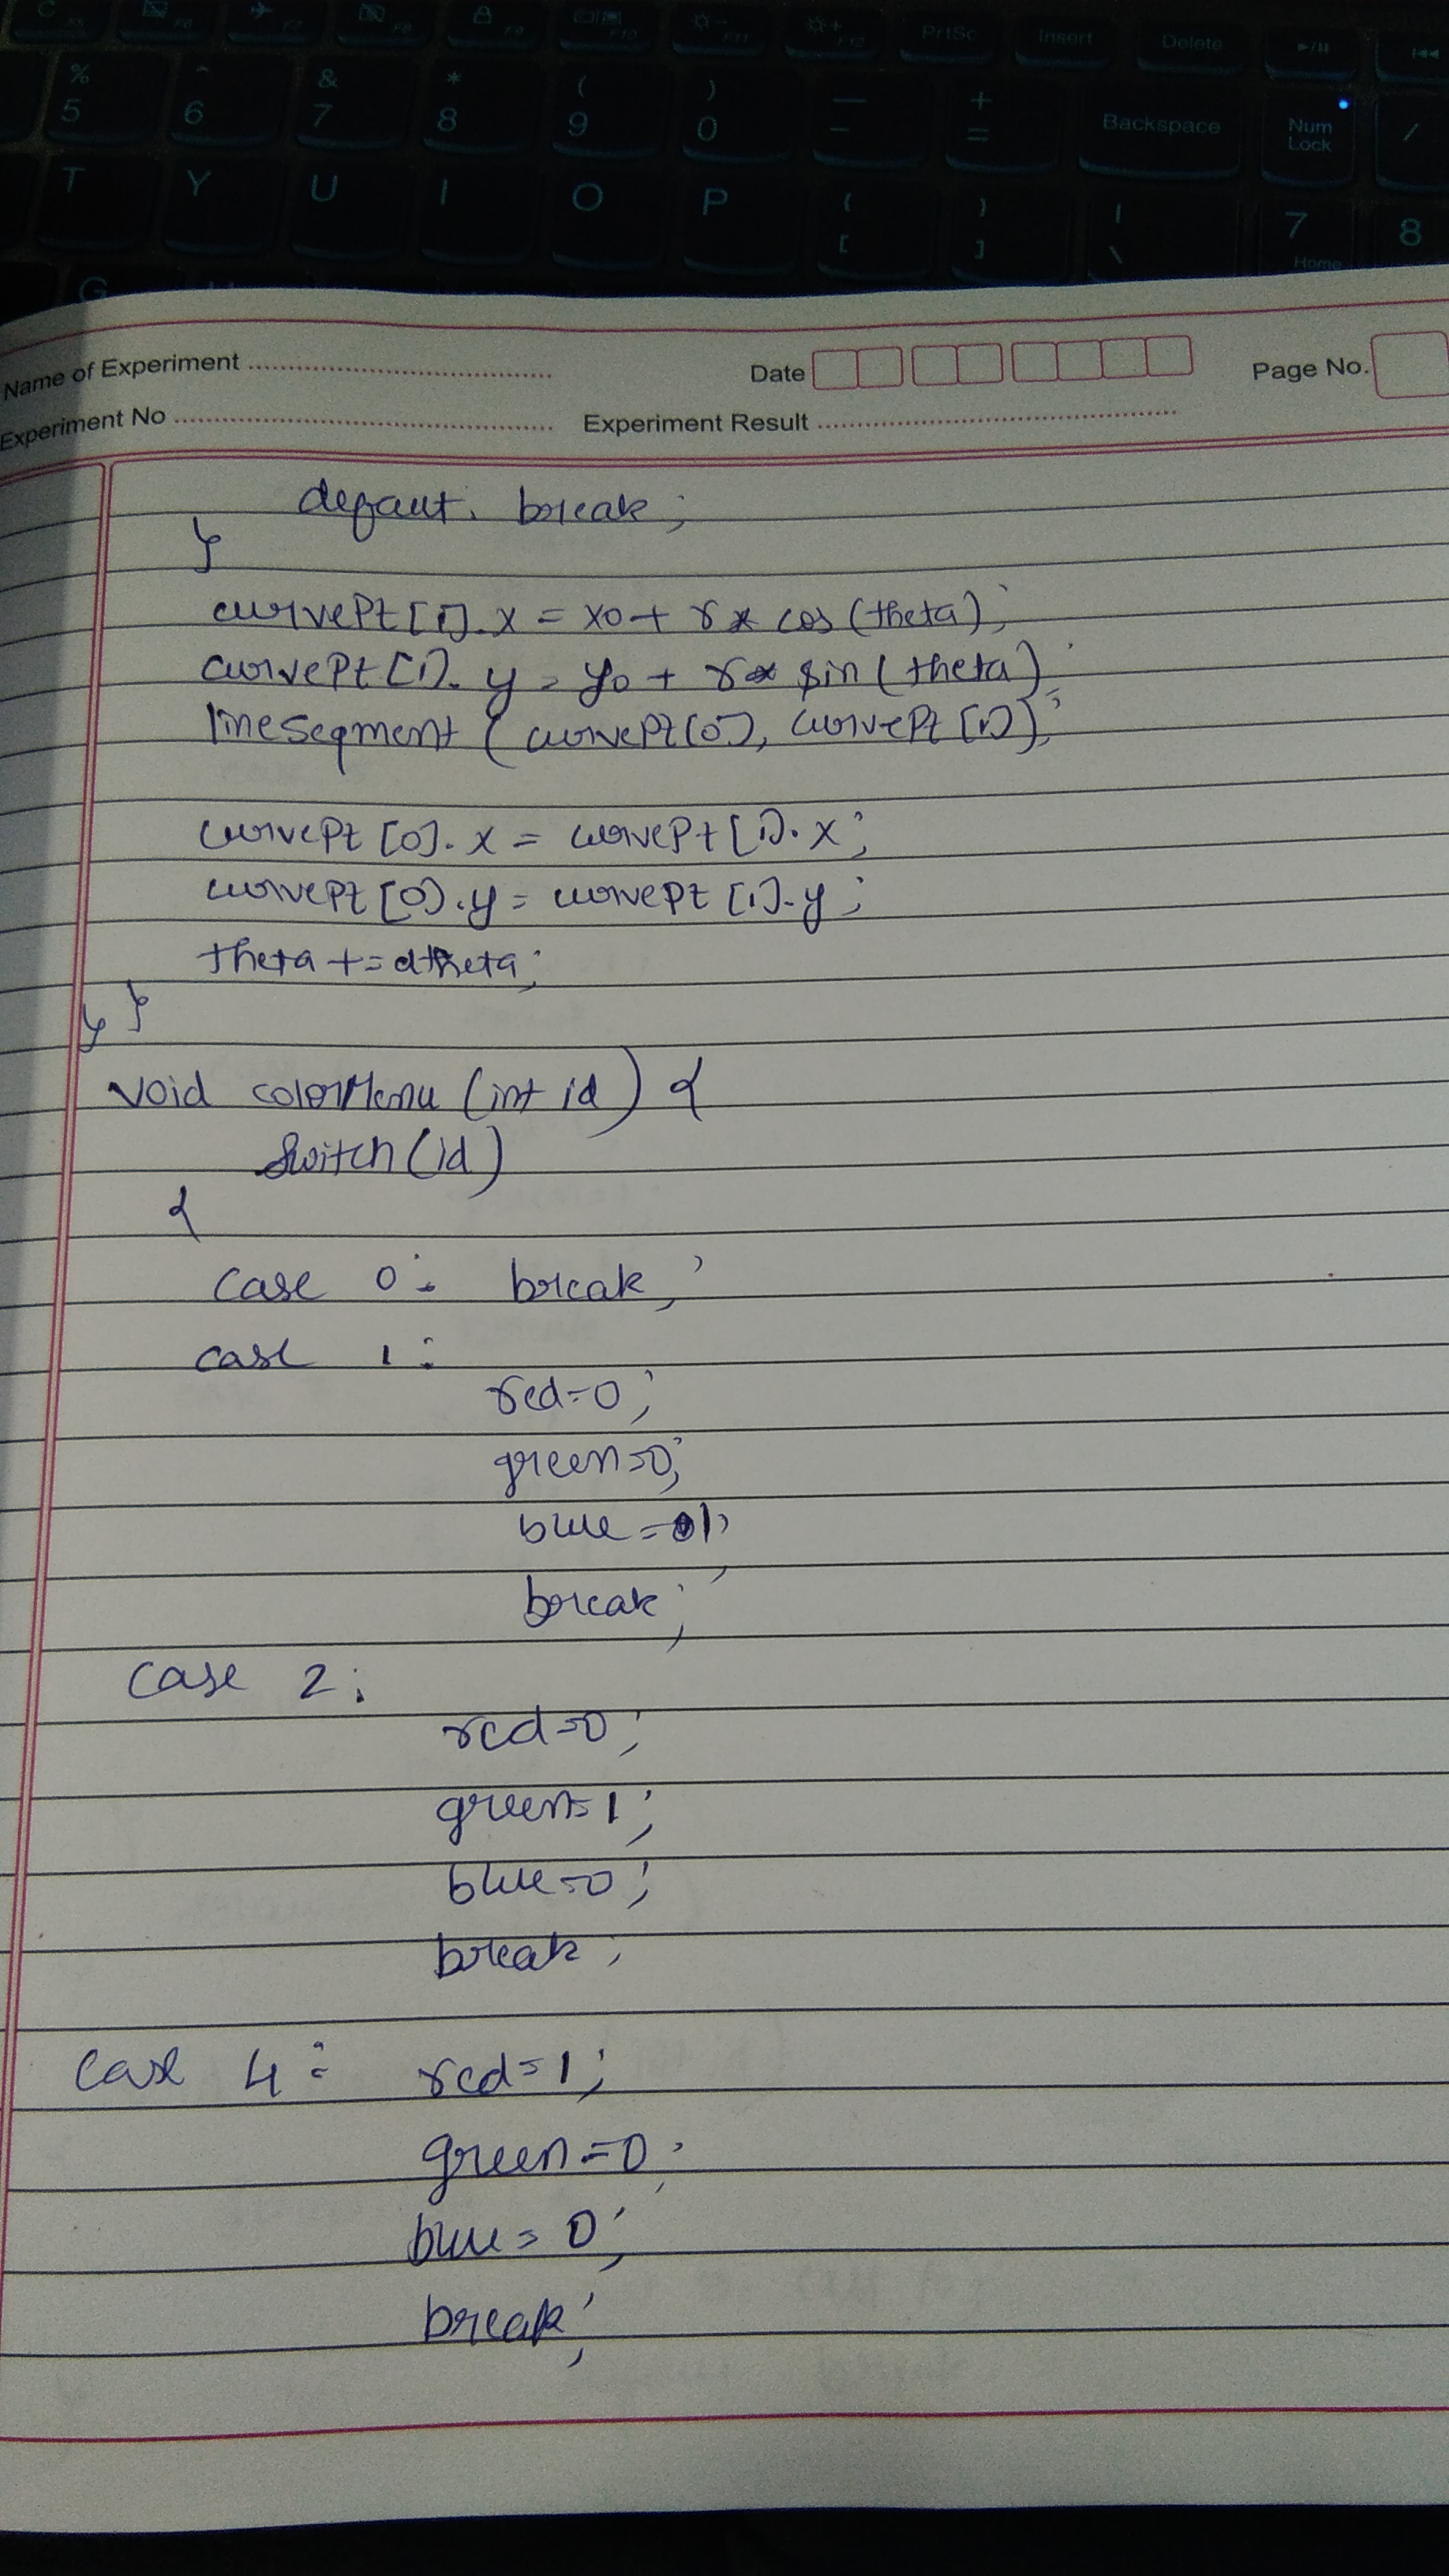 F5 F6 F7 F8 F9 F10 F11 F12 PrtSc Insert Delete
% ^ & * ( ) — +
5 6 7 8 9 0 - = Backspace Num Lock /
T Y U I O P { [ } ] | \ 7 Home 8
G
Name of Experiment Date Page No.
Experiment No Experiment Result
defaut: break;
}
curvePt[1].x = x0 + r* cos(theta);
curvePt[1].y = y0 + r* sin(theta);
lineSegment (curvePt[0], curvePt[1]);
curvePt[0].x = curvePt[1].x;
curvePt[0].y = curvePt[1].y;
theta += dtheta;
} }
void colorMenu (int id) {
switch(id)
{
case 0: break;
case 1:
red=0;
green=0;
blue=1;
break;
case 2:
red=0;
green=1;
blue=0;
break;
case 4: red=1;
green=0;
blue=0;
break;